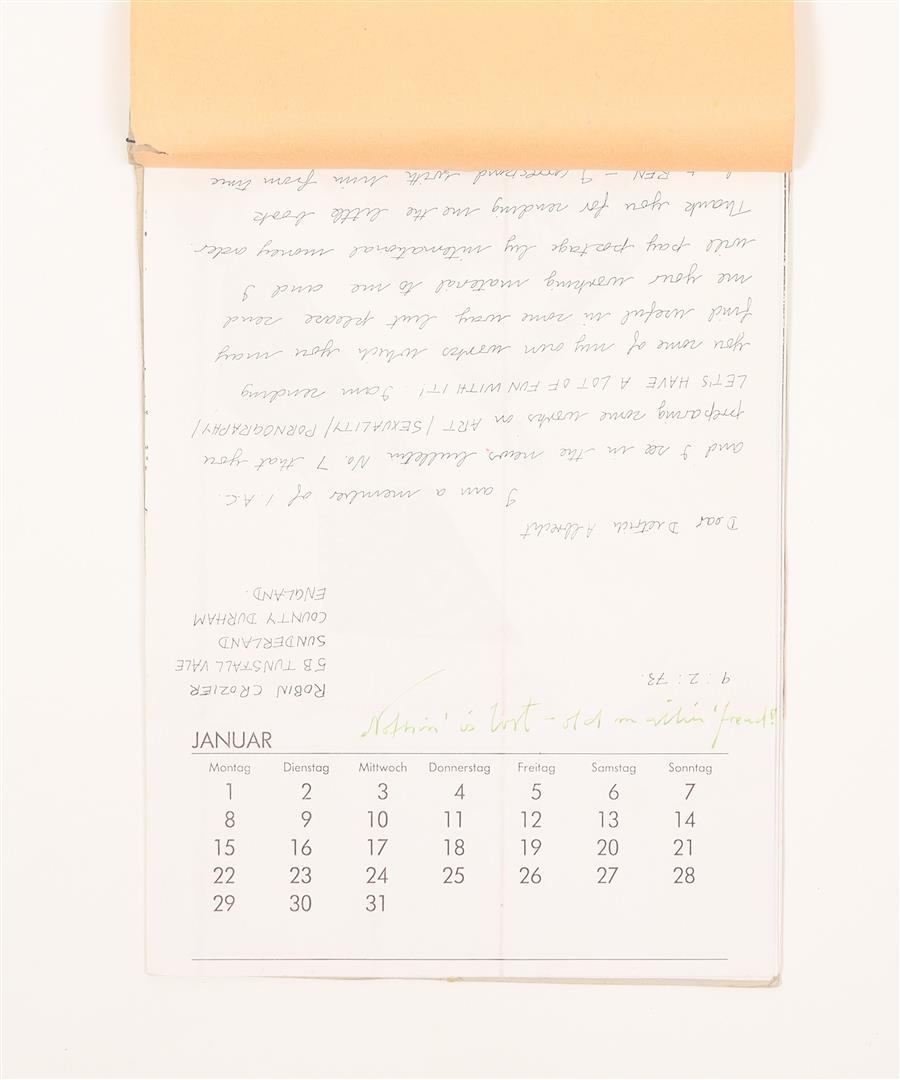 ROBIN CROZIER
5B TUNSTALL VALE
SUNDERLAND
COUNTY DURHAM
ENGLAND.
9:2:73.
Dear Dietrich Albrecht
I am a member of I.A.C.
and I see in the news bulletin No. 7 that you
preparing some works on ART/SEXUALITY/PORNOGRAPHY/
LET'S HAVE A LOT OF FUN WITH IT! I am sending
you some of my own works which you may
find useful in some way but please send
me your working material to me and I
will pay postage by international money order.
Thank you for sending me the little book
BEN - I correspond with him from time
Nothin' is lost - old
JANUAR
Montag Dienstag Mittwoch Donnerstag Freitag Samstag Sonntag
1 2 3 4 5 6 7
8 9 10 11 12 13 14
15 16 17 18 19 20 21
22 23 24 25 26 27 28
29 30 31